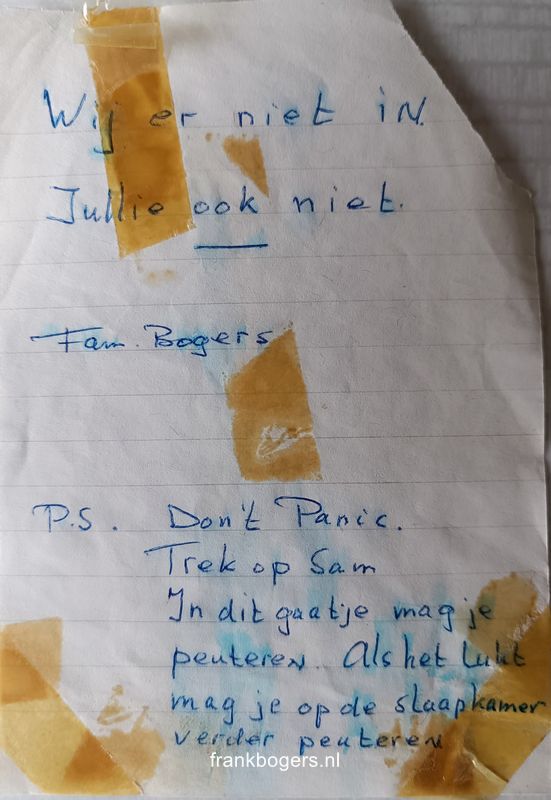 Wij er niet in.
Jullie ook niet.
Fam. Bogers
P.S. Don't Panic.
Trek op Sam
In dit gaatje mag je
peuteren. Als het lukt
mag je op de slaapkamer
verder peuteren
frankbogers.nl